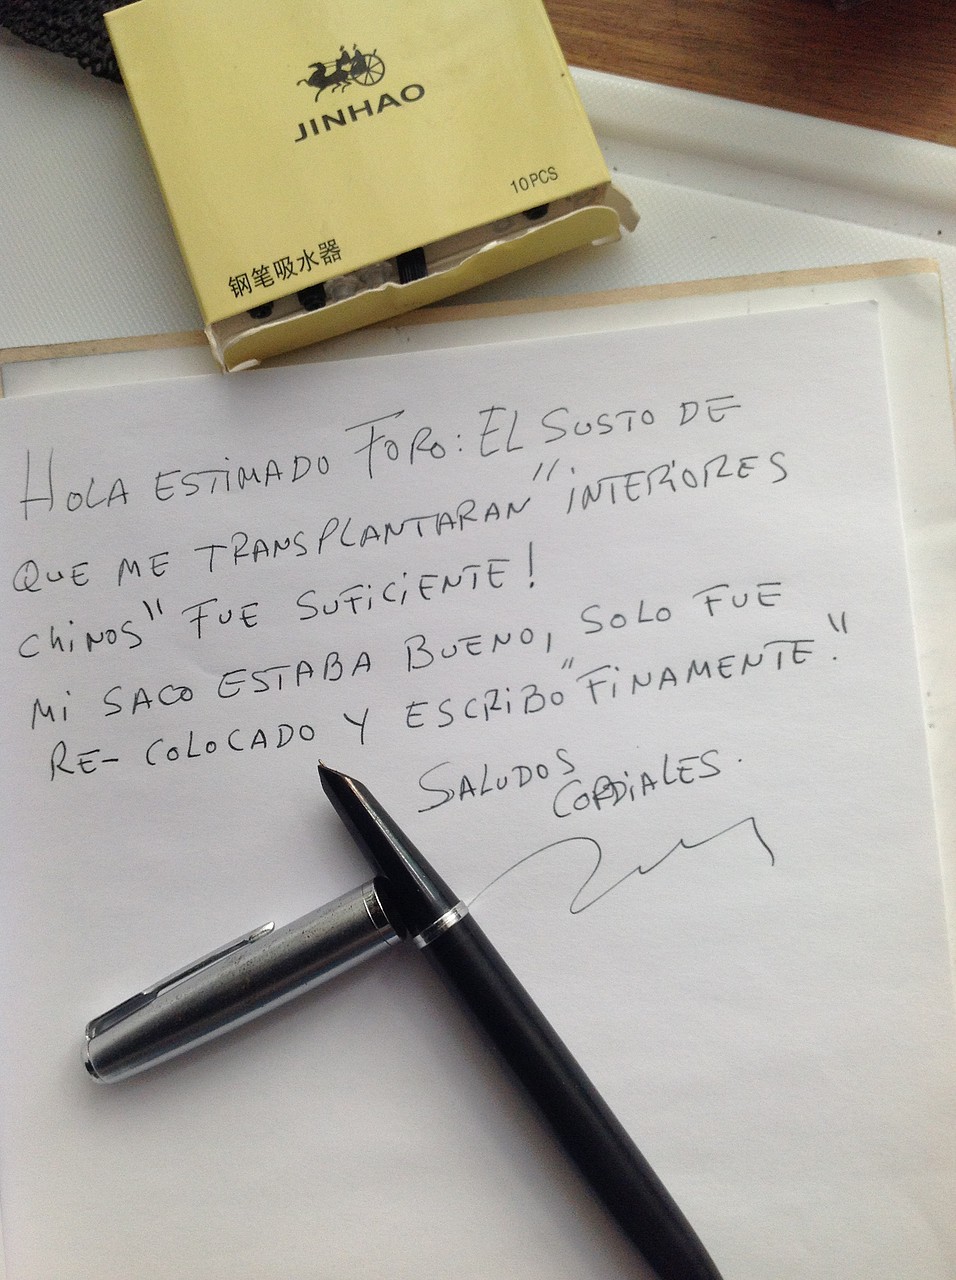 JINHAO
10PCS
钢笔吸水器
HOLA ESTIMADO FORO: EL SUSTO DE
QUE ME TRANSPLANTARAN "INTERIORES
CHINOS" FUE SUFICIENTE!
MI SACO ESTABA BUENO, SOLO FUE
RE- COLOCADO Y ESCRIBO "FINAMENTE."
SALUDOS
CORDIALES.